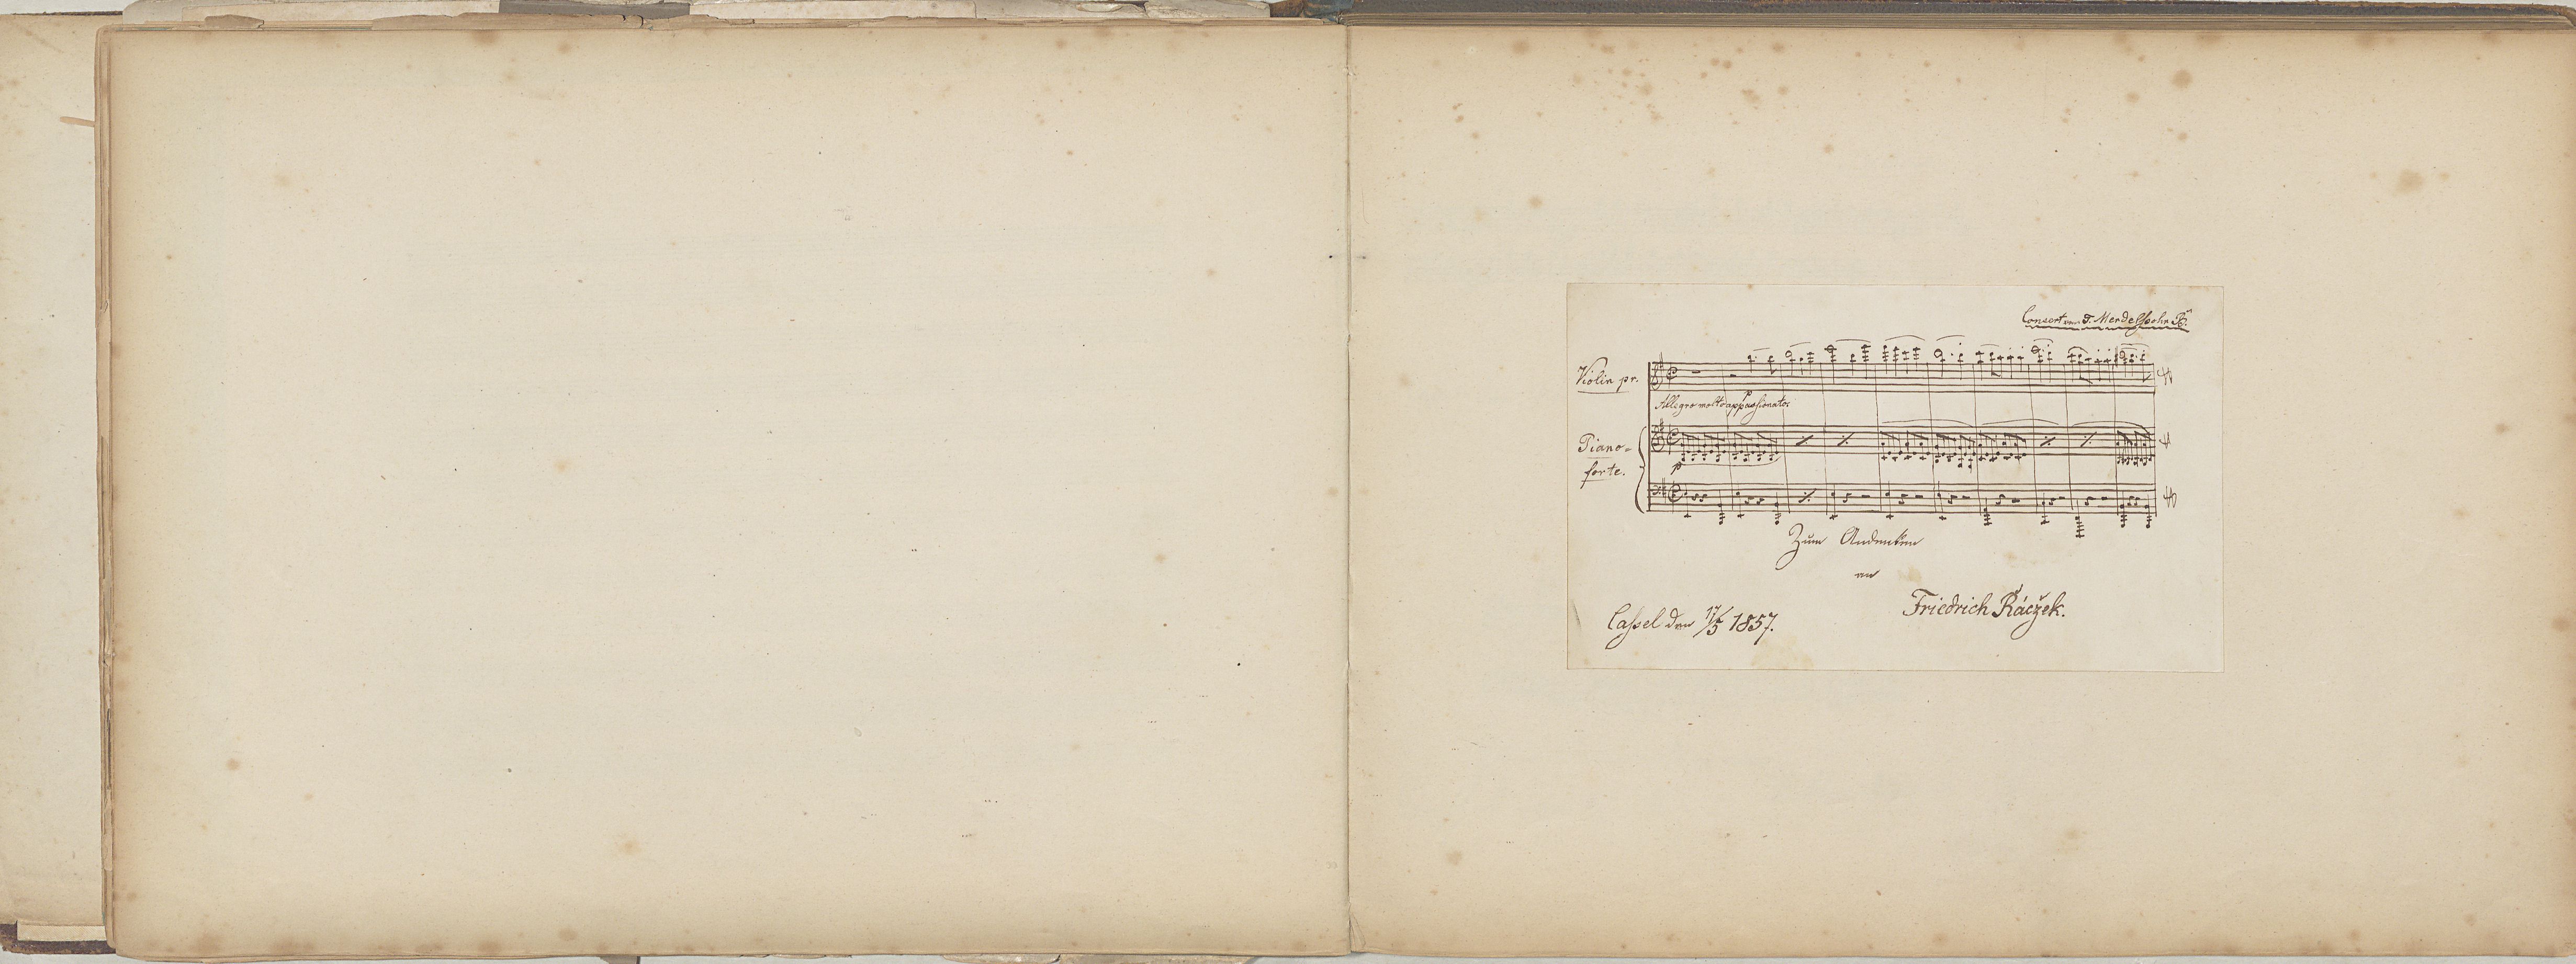 Concert von F. Mendelssohn B.
Violin pr.
p
Allegro molto appassionato:
Piano-
forte.
p
Zum Andenken
an
Friedrich Ráczek.
Cassel den 17/5 1857.